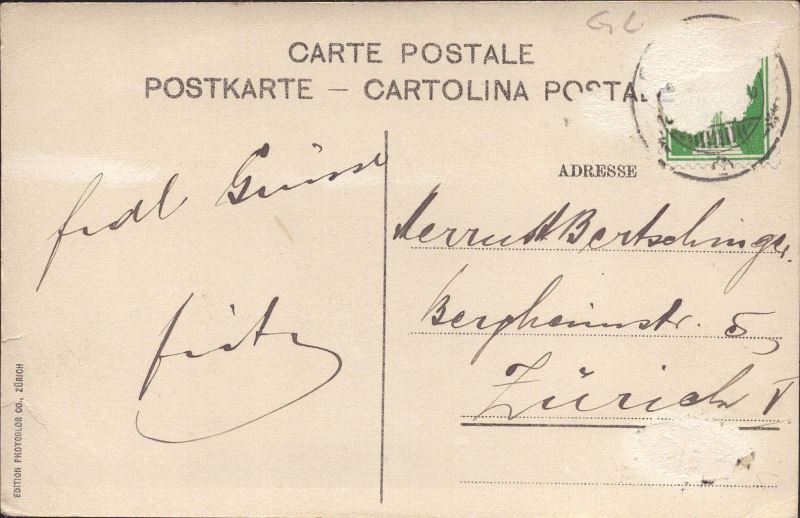 GL
CARTE POSTALE
POSTKARTE — CARTOLINA POSTA
ADRESSE
frdl Grüsse
Fritz
Herrn A Bertschinger.
Bergheimstr. 5
Zürich V
EDITION PHOTOGLOB CO., ZÜRICH